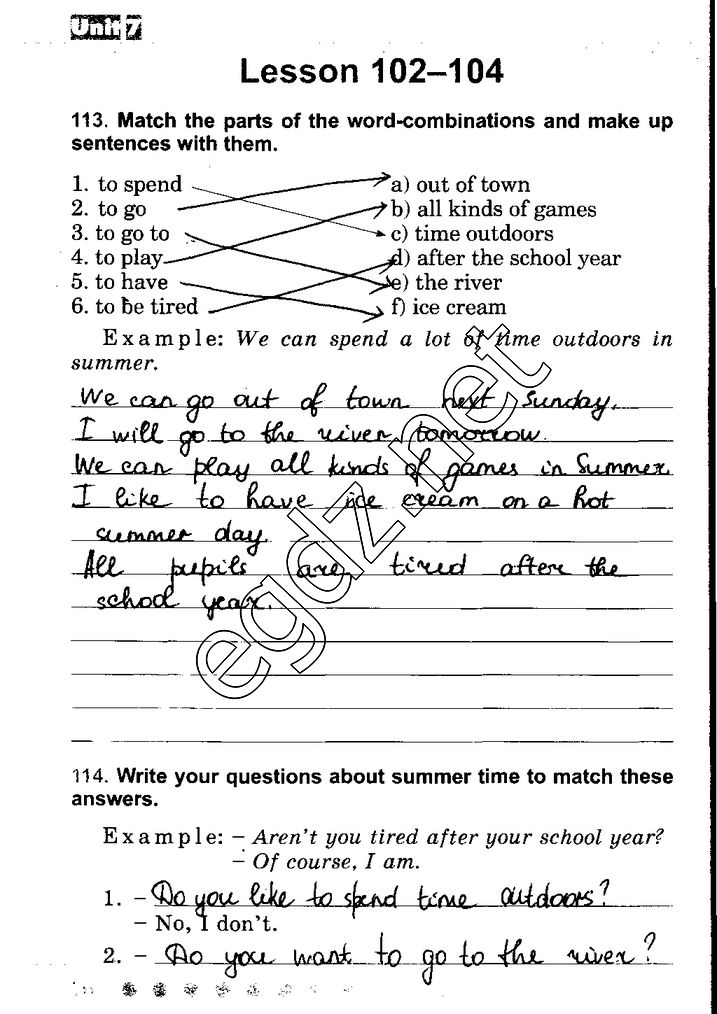 Unit 7
Lesson 102–104
113. Match the parts of the word-combinations and make up
sentences with them.
1. to spend a) out of town
2. to go b) all kinds of games
3. to go to c) time outdoors
4. to play d) after the school year
5. to have e) the river
6. to be tired f) ice cream
Example: We can spend a lot of time outdoors in
summer.
We can go out of town next Sunday.
I will go to the river tomorrow.
We can play all kinds of games in Summer
I like to have ice cream on a hot
summer day.
All pupils are tired after the
school year.
egdz.net
114. Write your questions about summer time to match these
answers.
Example: – Aren't you tired after your school year?
– Of course, I am.
1. – Do you like to spend time outdoors?
– No, I don't.
2. – Do you want to go to the river?